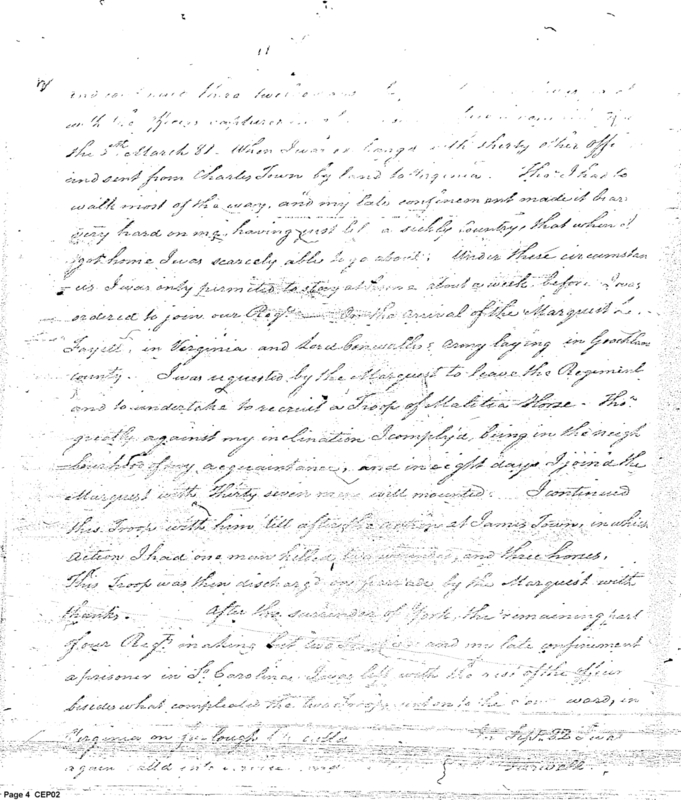 with the officers captured in
the 5th March 81. When I was exchangd with thirty other offi
and sent from Charles Town by land to Virginia. Tho' I had to
walk most of the way, and my late confinement made it bear
very hard on me, having just left a sickly Country, that when I
got home I was scarcely able to go about; Under these circumstan
ces I was only permited to stay at home about a week before I was
ordered to join our Regt. On the arrival of the Marquest
Fayett, in Virginia and Lord Cornwallis's army laying in Goochland
county. I was requested by the Marquest to leave the Regiment
and to undertake to recruit a Troop of Malitia Horse. Tho'
greatly against my inclination I comply'd, being in the neigh
bourhood of my acquaintance, and in eight days I join'd the
Marquest with Thirty seven men well mounted. I continued
this Troop with him 'till after the action at James Town, in which
Action I had one man killed, two wounded, and three horses.
This Troop was then discharg'd on parade by the Marquest with
thanks. After the surrender of York, the remaining part
of our Regt. making but two Troops and my late confinement
a prisoner in So. Carolina I was left with the rest of the officers
besides what compleated the two Troops sent on to the ward, in
Virginia on furlough 'til call'd In Sept. 82 I was
again call'd into
Page 4 CEP02